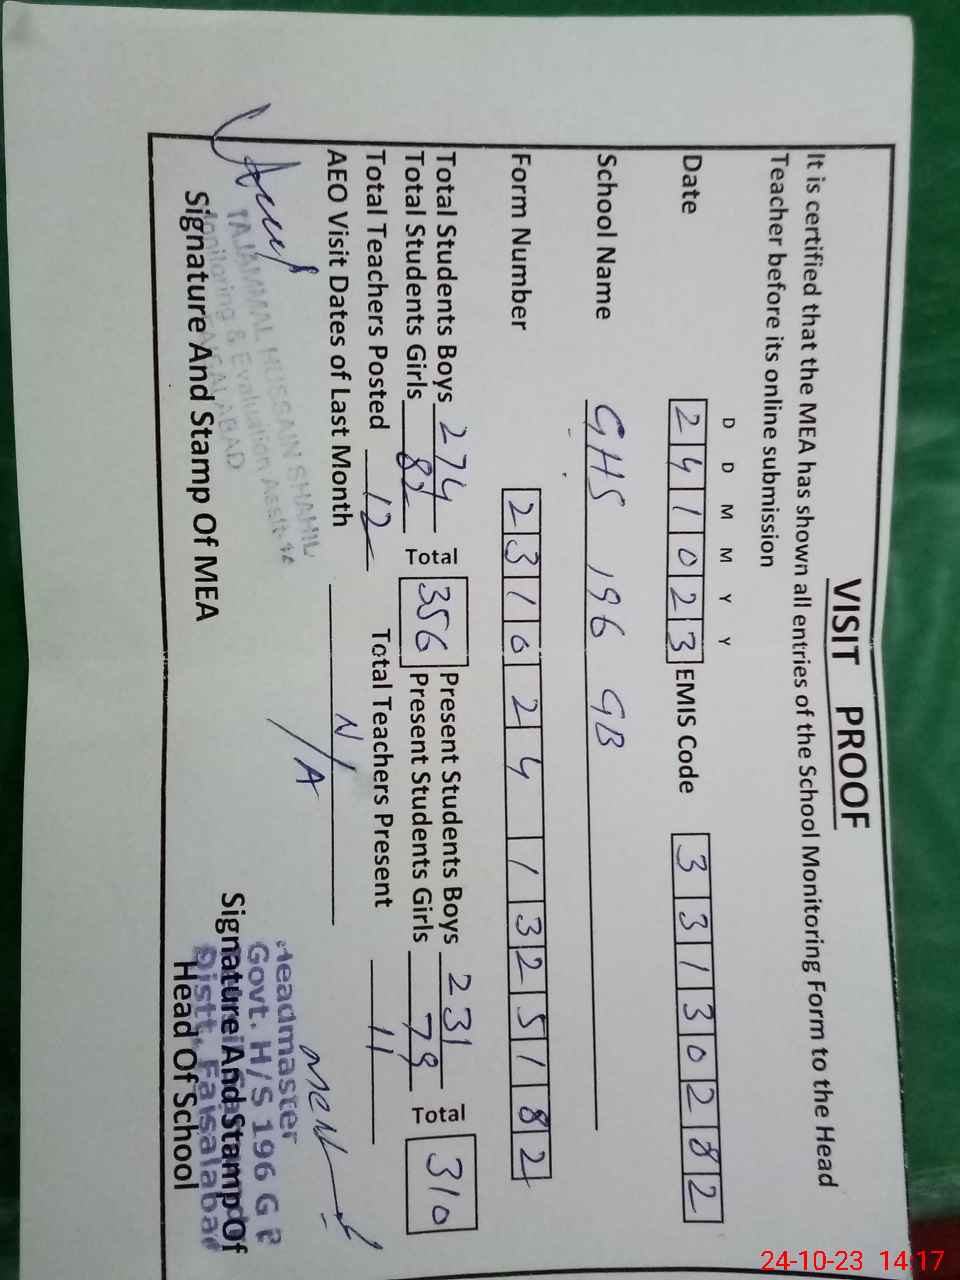 VISIT PROOF
It is certified that the MEA has shown all entries of the School Monitoring Form to the Head
Teacher before its online submission
D D M M Y Y
Date 241023 EMIS Code 33130282
School Name GHS 196 GB
Form Number 2310241325182
Total Students Boys 274 Present Students Boys 231
Total Students Girls 82 Total 356 Present Students Girls 79 Total 310
Total Teachers Posted 12 Total Teachers Present 11
AEO Visit Dates of Last Month N/A
TAJAMMAL HUSSAIN
Monitoring & Evaluation Asstt
FAISALABAD
Signature And Stamp Of MEA
Headmaster
Govt. H/S 196 G B
Signature And Stamp Of
Distt. Faisalabad
Head Of School
24-10-23 14:17